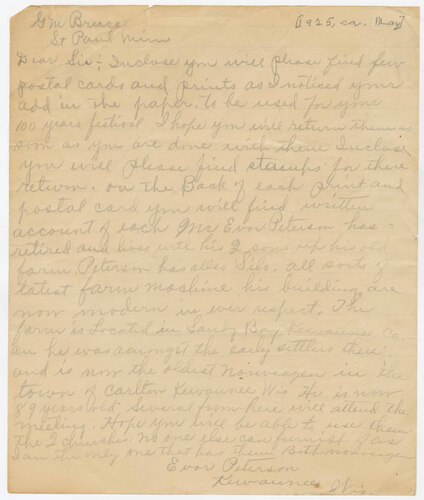 G M Bruce [1925, ca. May]
St Paul Minn
Dear Sir: Inclose you will please find few
postal cards and prints as I noticed your
add in the paper, to be used for your
100 years festival I hope you will return them as
soon as you are done with them Inclose
you will please find stamps for there
return. on the Back of each print and
postal card you will find written
account of each Mr Evor Peterson has
retired and lives with his 2 sons up his old
farm Peterson has allso Silo, all sorts of
latest farm machine his building are
now modern in ever respect. The
farm is Located in Sandy Bay Kewaunee Co
an he was amongst the early settlers there,
and is now the oldest Norwegen in the
town of Carlton Kewaunee Wis He is now
89 years old Several from here will attend the
meeting. Hope you will be able to use them
the 2 churches. No one else can furnish as
I am the only one that has them Both
Evor Peterson
Kewaunee Wis